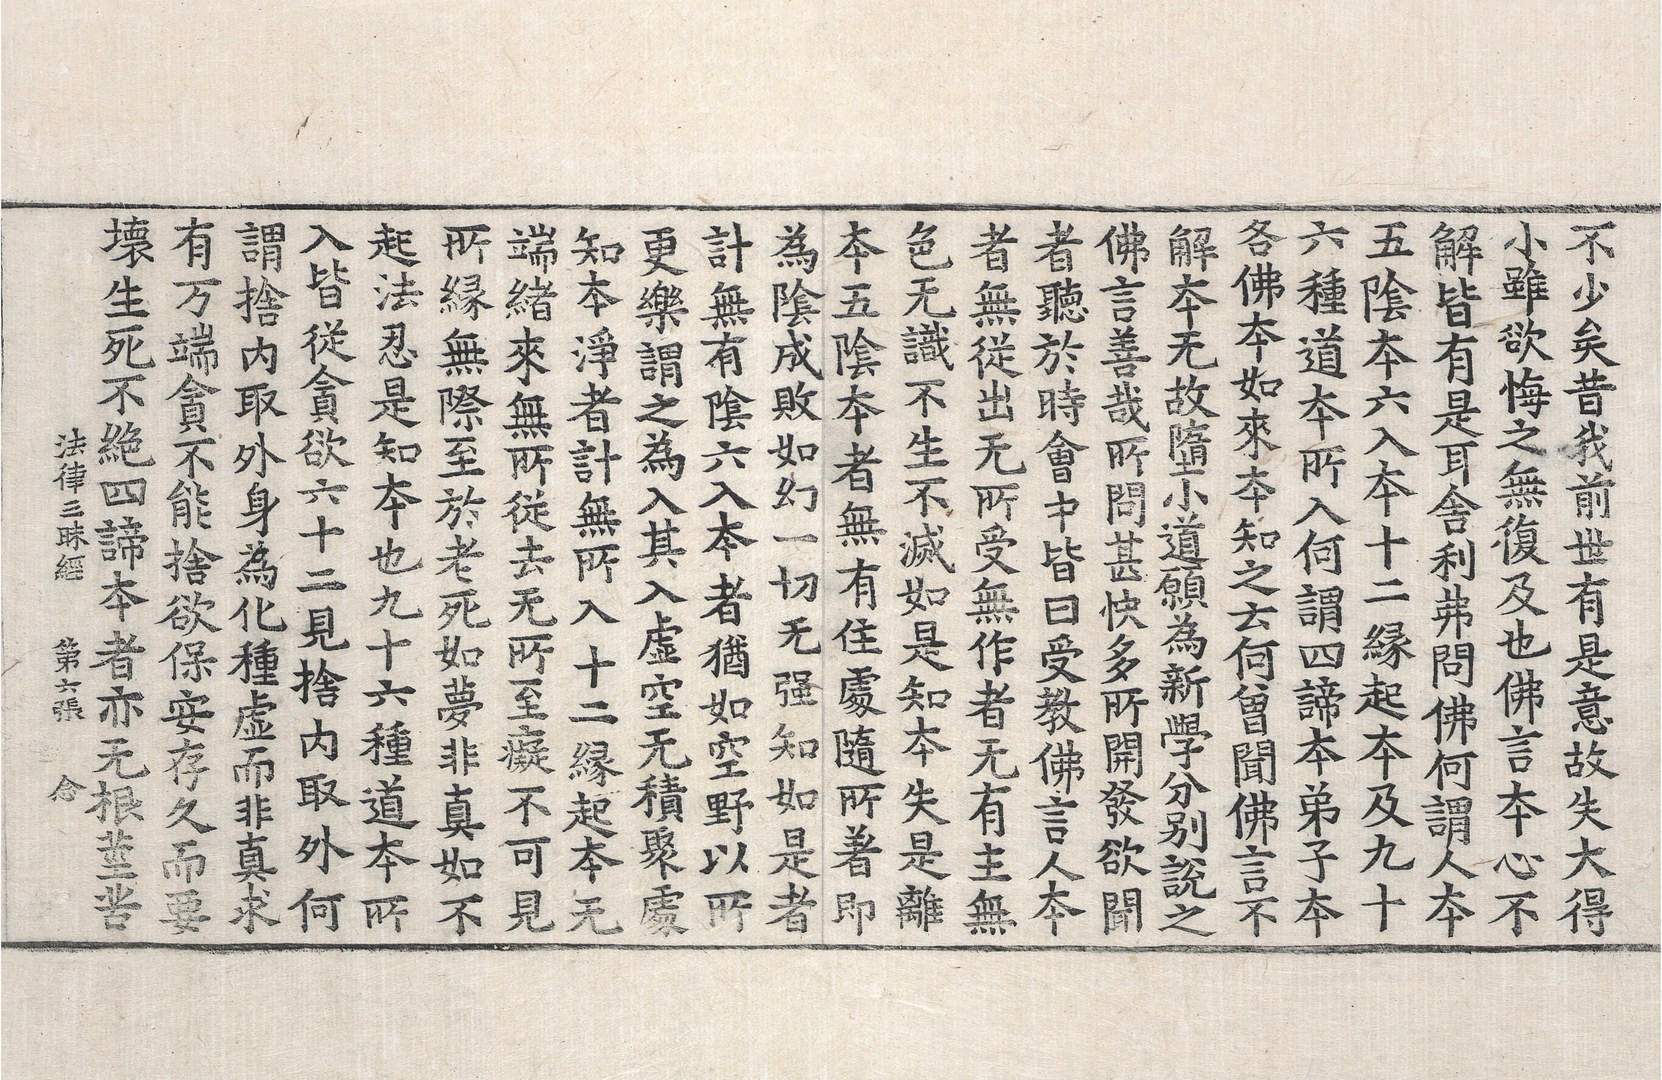 不少矣昔我前世有是意故失大得
小雖欲悔之無復及也佛言夲心不
解皆有是耳舍利弗問佛何謂人夲
五陰夲六入夲十二緣起夲及九十
六種道夲所入何謂四諦夲弟子夲
各佛夲如來夲知之云何曾聞佛言不
解夲无故墮小道願為新學分別說之
佛言善哉所問甚快多所開發欲聞
者聽於時會中皆曰受教佛言人夲
者無從出无所受無作者无有主無
色无識不生不滅如是知夲失是離
夲五陰夲者無有住處隨所著即
為陰成敗如幻一切无强知如是者
計無有陰六入夲者猶如空野以所
更樂謂之為入其入虛空无積聚處
知夲淨者計無所入十二緣起夲无
端緒來無所從去无所至癡不可見
所緣無際至於老死如夢非真如不
起法忍是知夲也九十六種道夲所
入皆從貪欲六十二見捨內取外何
謂捨內取外身為化種虛而非真求
有万端貪不能捨欲保安存久而要
壞生死不絕四諦夲者亦无根莖苦
法律三昧經 第六張 念